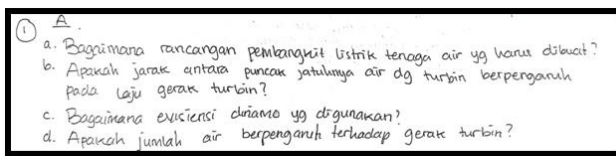 1 A.
a. Bagaimana rancangan pembangkit listrik tenaga air yg harus dibuat?
b. Apakah jarak antara puncak jatuhnya air dg turbin berpengaruh
pada laju gerak turbin?
c. Bagaimana evisiensi dinamo yg digunakan?
d. Apakah jumlah air berpengaruh terhadap gerak turbin?